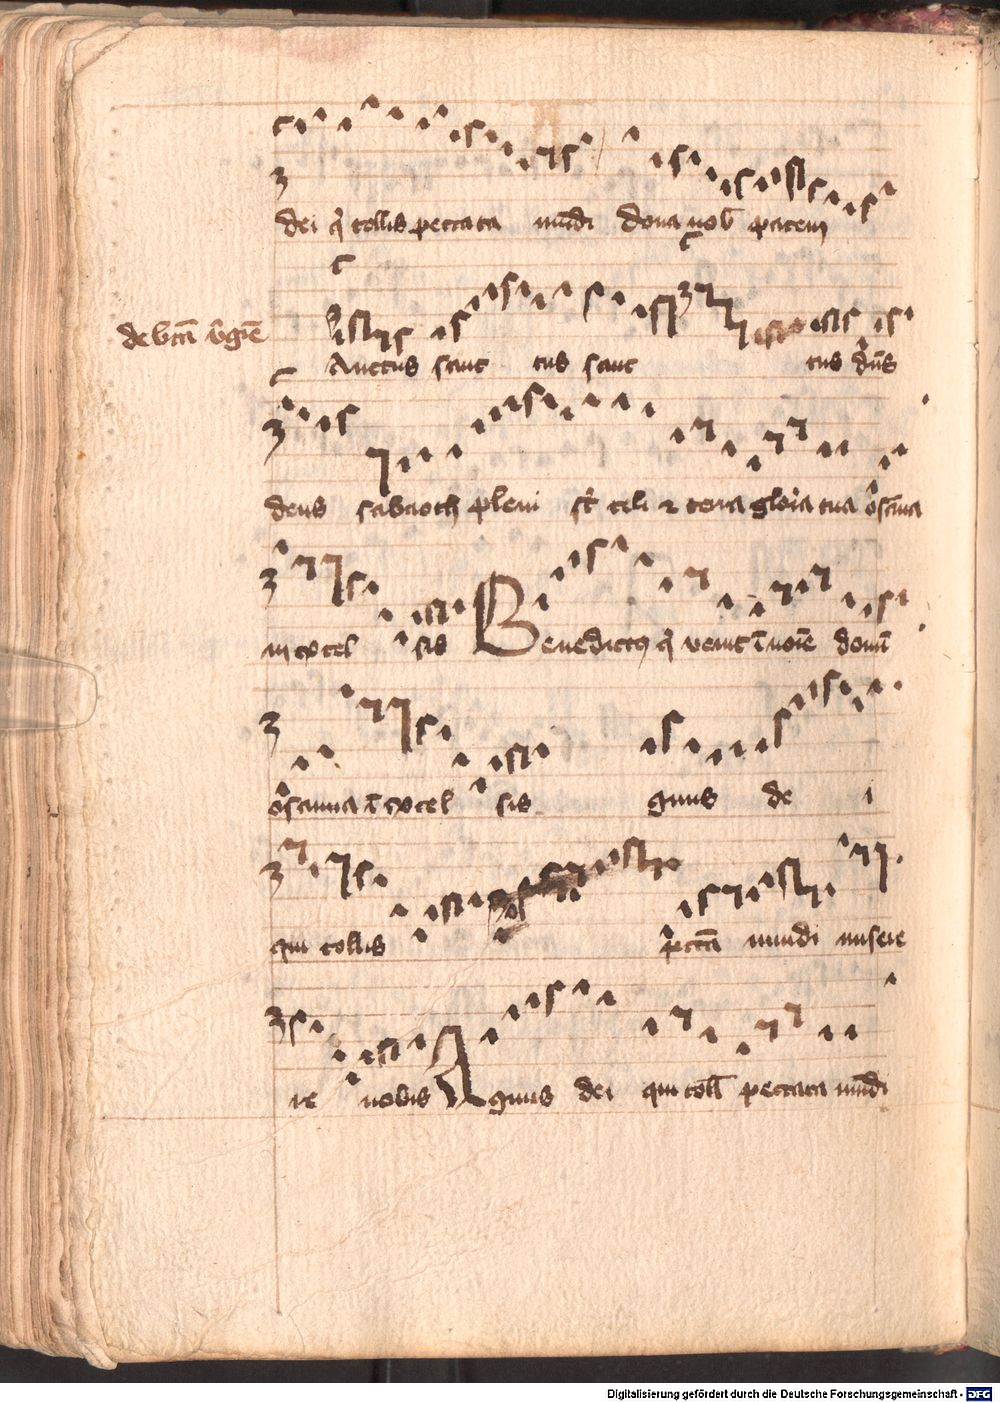 dei q̇ tollis peccata mūdi dona nob̄ pacem
de btā v̄giē
Anctus sanc tus sanc tus dn̄s
deus sabaoth pleni st̄ celi et terra gloria tua osāna
in excel sis Benedictus q̇ venit ī noīe domī
osanna ī excel sis gnus de i
qui tollis pctā mundi misere
re nobis Agnus dei qui toll̄ peccata mūdi
Digitalisierung gefördert durch die Deutsche Forschungsgemeinschaft - DFG